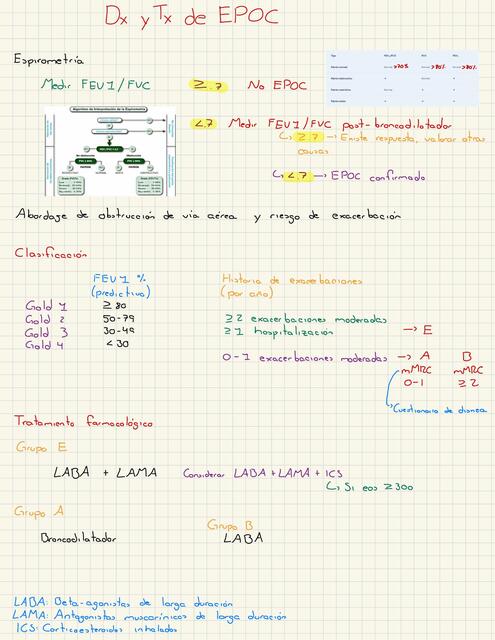 Dx y Tx de EPOC
Espirometría
Medir FEV1/FVC ≥.7 No EPOC
>70% >80% >80%
<.7 Medir FEV1/FVC post-broncodilatador
≥.7 → Existe respuesta, valorar otras
causas
<.7 → EPOC confirmado
Abordaje de obstrucción de vía aérea y riesgo de exacerbación
Clasificación
FEV1 %
(predictivo)
Gold 1 ≥80
Gold 2 50-79
Gold 3 30-49
Gold 4 <30
Historia de exacerbaciones
(por año)
≥2 exacerbaciones moderadas
≥1 hospitalización → E
0-1 exacerbaciones moderadas → A B
mMRC mMRC
0-1 ≥2
Cuestionario de disnea
Tratamiento farmacológico
Grupo E
LABA + LAMA Considerar LABA+LAMA+ICS
Si eos ≥300
Grupo A
Broncodilatador
Grupo B
LABA
LABA: Beta-agonistas de larga duración
LAMA: Antagonistas muscarínicos de larga duración
ICS: Corticoesteroides inhalados